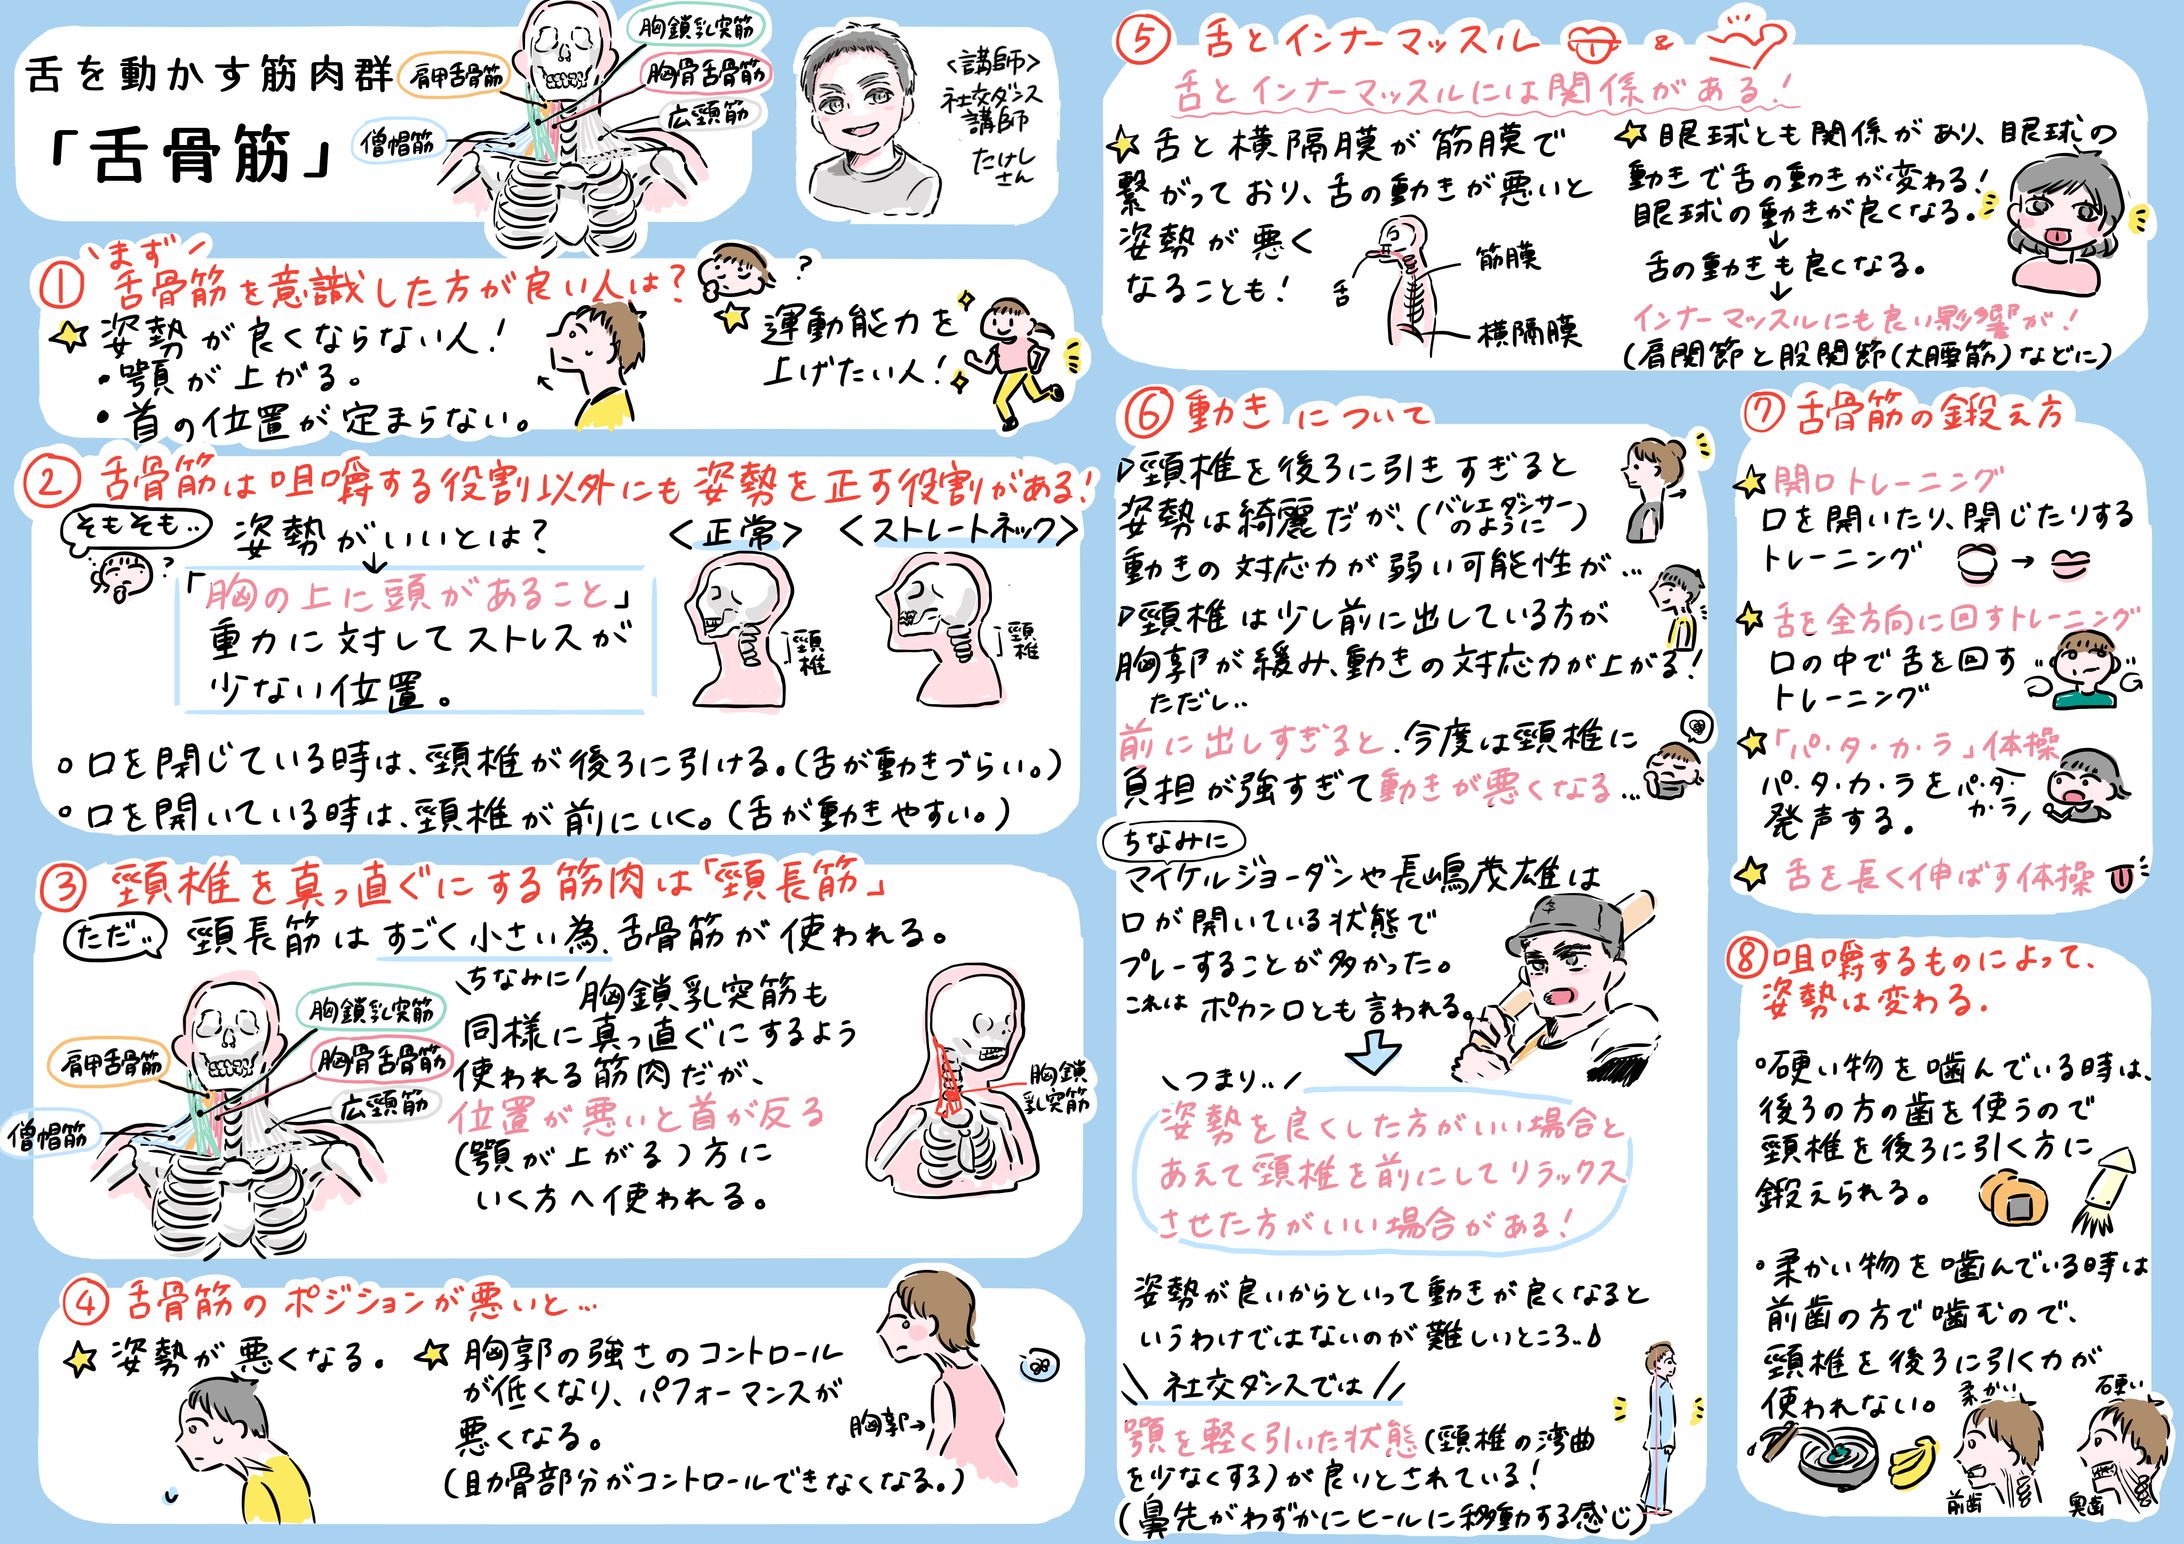 舌を動かす筋肉群
「舌骨筋」
胸鎖乳突筋
肩甲舌骨筋
胸骨舌骨筋
広頸筋
僧帽筋
<講師>
社交ダンス
講師
たけし
さん
① \まず/
舌骨筋を意識した方が良い人は?
?
☆姿勢が良くならない人!
・顎が上がる。
・首の位置が定まらない。
☆運動能力を
上げたい人!
② 舌骨筋は咀嚼する役割以外にも姿勢を正す役割がある!
そもそも..
?
姿勢がいいとは?
↓
「胸の上に頭があること」
重力に対してストレスが
少ない位置。
<正常>
頸椎
<ストレートネック>
頸椎
○口を閉じている時は、頸椎が後ろに引ける。(舌が動きづらい。)
○口を開いている時は、頸椎が前にいく。(舌が動きやすい。)
③ 頸椎を真っ直ぐにする筋肉は「頸長筋」
ただ..
頸長筋はすごく小さい為、舌骨筋が使われる。
胸鎖乳突筋
肩甲舌骨筋
胸骨舌骨筋
広頸筋
僧帽筋
\ちなみに/
胸鎖乳突筋も
同様に真っ直ぐにするよう
使われる筋肉だが、
位置が悪いと首が反る
(顎が上がる)方に
いく方へ使われる。
胸鎖
乳突筋
④ 舌骨筋のポジションが悪いと…
☆姿勢が悪くなる。
☆胸郭の強さのコントロール
が低くなり、パフォーマンスが
悪くなる。
(肋骨部分がコントロールできなくなる。)
胸郭→
⑤ 舌とインナーマッスル &
舌とインナーマッスルには関係がある!
☆舌と横隔膜が筋膜で
繋がっており、舌の動きが悪いと
姿勢が悪く
なることも!
舌
筋膜
横隔膜
☆眼球とも関係があり、眼球の
動きで舌の動きが変わる!
眼球の動きが良くなる。
↓
舌の動きも良くなる。
↓
インナーマッスルにも良い影響が!
(肩関節と股関節(大腰筋)などに)
⑥ 動きについて
▷頸椎を後ろに引きすぎると
姿勢は綺麗だが、(バレエダンサーのように)
動きの対応力が弱い可能性が…
▷頸椎は少し前に出している方が
胸郭が緩み、動きの対応力が上がる!
ただし..
前に出しすぎると、今度は頸椎に
負担が強すぎて動きが悪くなる…
ちなみに
マイケルジョーダンや長嶋茂雄は
口が開いている状態で
プレーすることが多かった。
これは ポカン口とも言われる。
\つまり../
姿勢を良くした方がいい場合と
あえて頸椎を前にしてリラックス
させた方がいい場合がある!
姿勢が良いからといって動きが良くなると
いうわけではないのが難しいところ..
\\社交ダンスでは//
顎を軽く引いた状態(頸椎の湾曲
を少なくする)が良いとされている!
(鼻先がわずかにヒールに移動する感じ)
⑦ 舌骨筋の鍛え方
☆開口トレーニング
口を開いたり、閉じたりする
トレーニング
→
☆舌を全方向に回すトレーニング
口の中で舌を回す
トレーニング
☆「パ・タ・カ・ラ」体操
パ・タ・カ・ラを
発声する。
パ・タ
カ・ラ/
☆舌を長く伸ばす体操
⑧咀嚼するものによって、
姿勢は変わる.
・硬い物を噛んでいる時は、
後ろの方の歯を使うので
頸椎を後ろに引く方に
鍛えられる。
・柔かい物を噛んでいる時は
前歯の方で噛むので、
頸椎を後ろに引く力が
使われない。
柔かい
前歯
硬い
奥歯